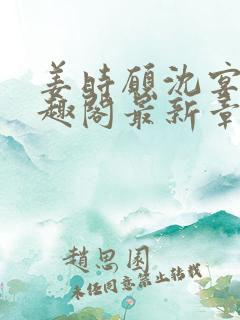 姜时愿沈宴
趣阁最新章
趙思園
未经同意禁止转载